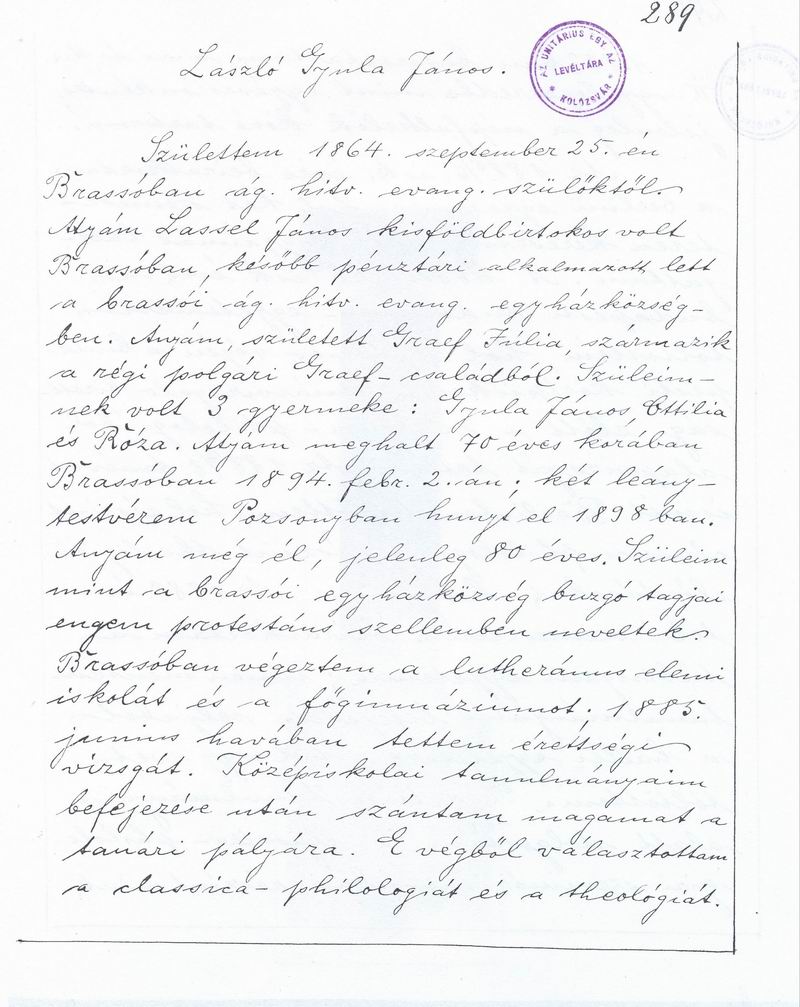 289
László Gyula János.
AZ UNITÁRIUS EGYHÁZ
LEVÉLTÁRA
KOLOZSVÁR
Születtem 1864. szeptember 25. én
Brassóban ág. hitv. evang. szülőktől.
Atyám Lassel János kisföldbirtokos volt
Brassóban, később pénztári alkalmazott lett
a brassói ág. hitv. evang. egyházközség-
ben. Anyám, született Graef Júlia, származik
a régi polgári Graef-családból. Szüleim-
nek volt 3 gyermeke: Gyula János, Ottilia
és Róza. Atyám meghalt 70 éves korában
Brassóban 1894. febr. 2.-án; két leány-
testvérem Pozsonyban hunyt el 1898 ban.
Anyám még él, jelenleg 80 éves. Szüleim
mint a brassói egyházközség buzgó tagjai
engem protestáns szellemben neveltek.
Brassóban végeztem a lutheránus elemi
iskolát és a főgimnáziumot; 1885.
junius havában tettem érettségi
vizsgát. Középiskolai tanulmányaim
befejezése után szántam magamat a
tanári pályára. E végből választottam
a classica-philologiát és a theológiát.